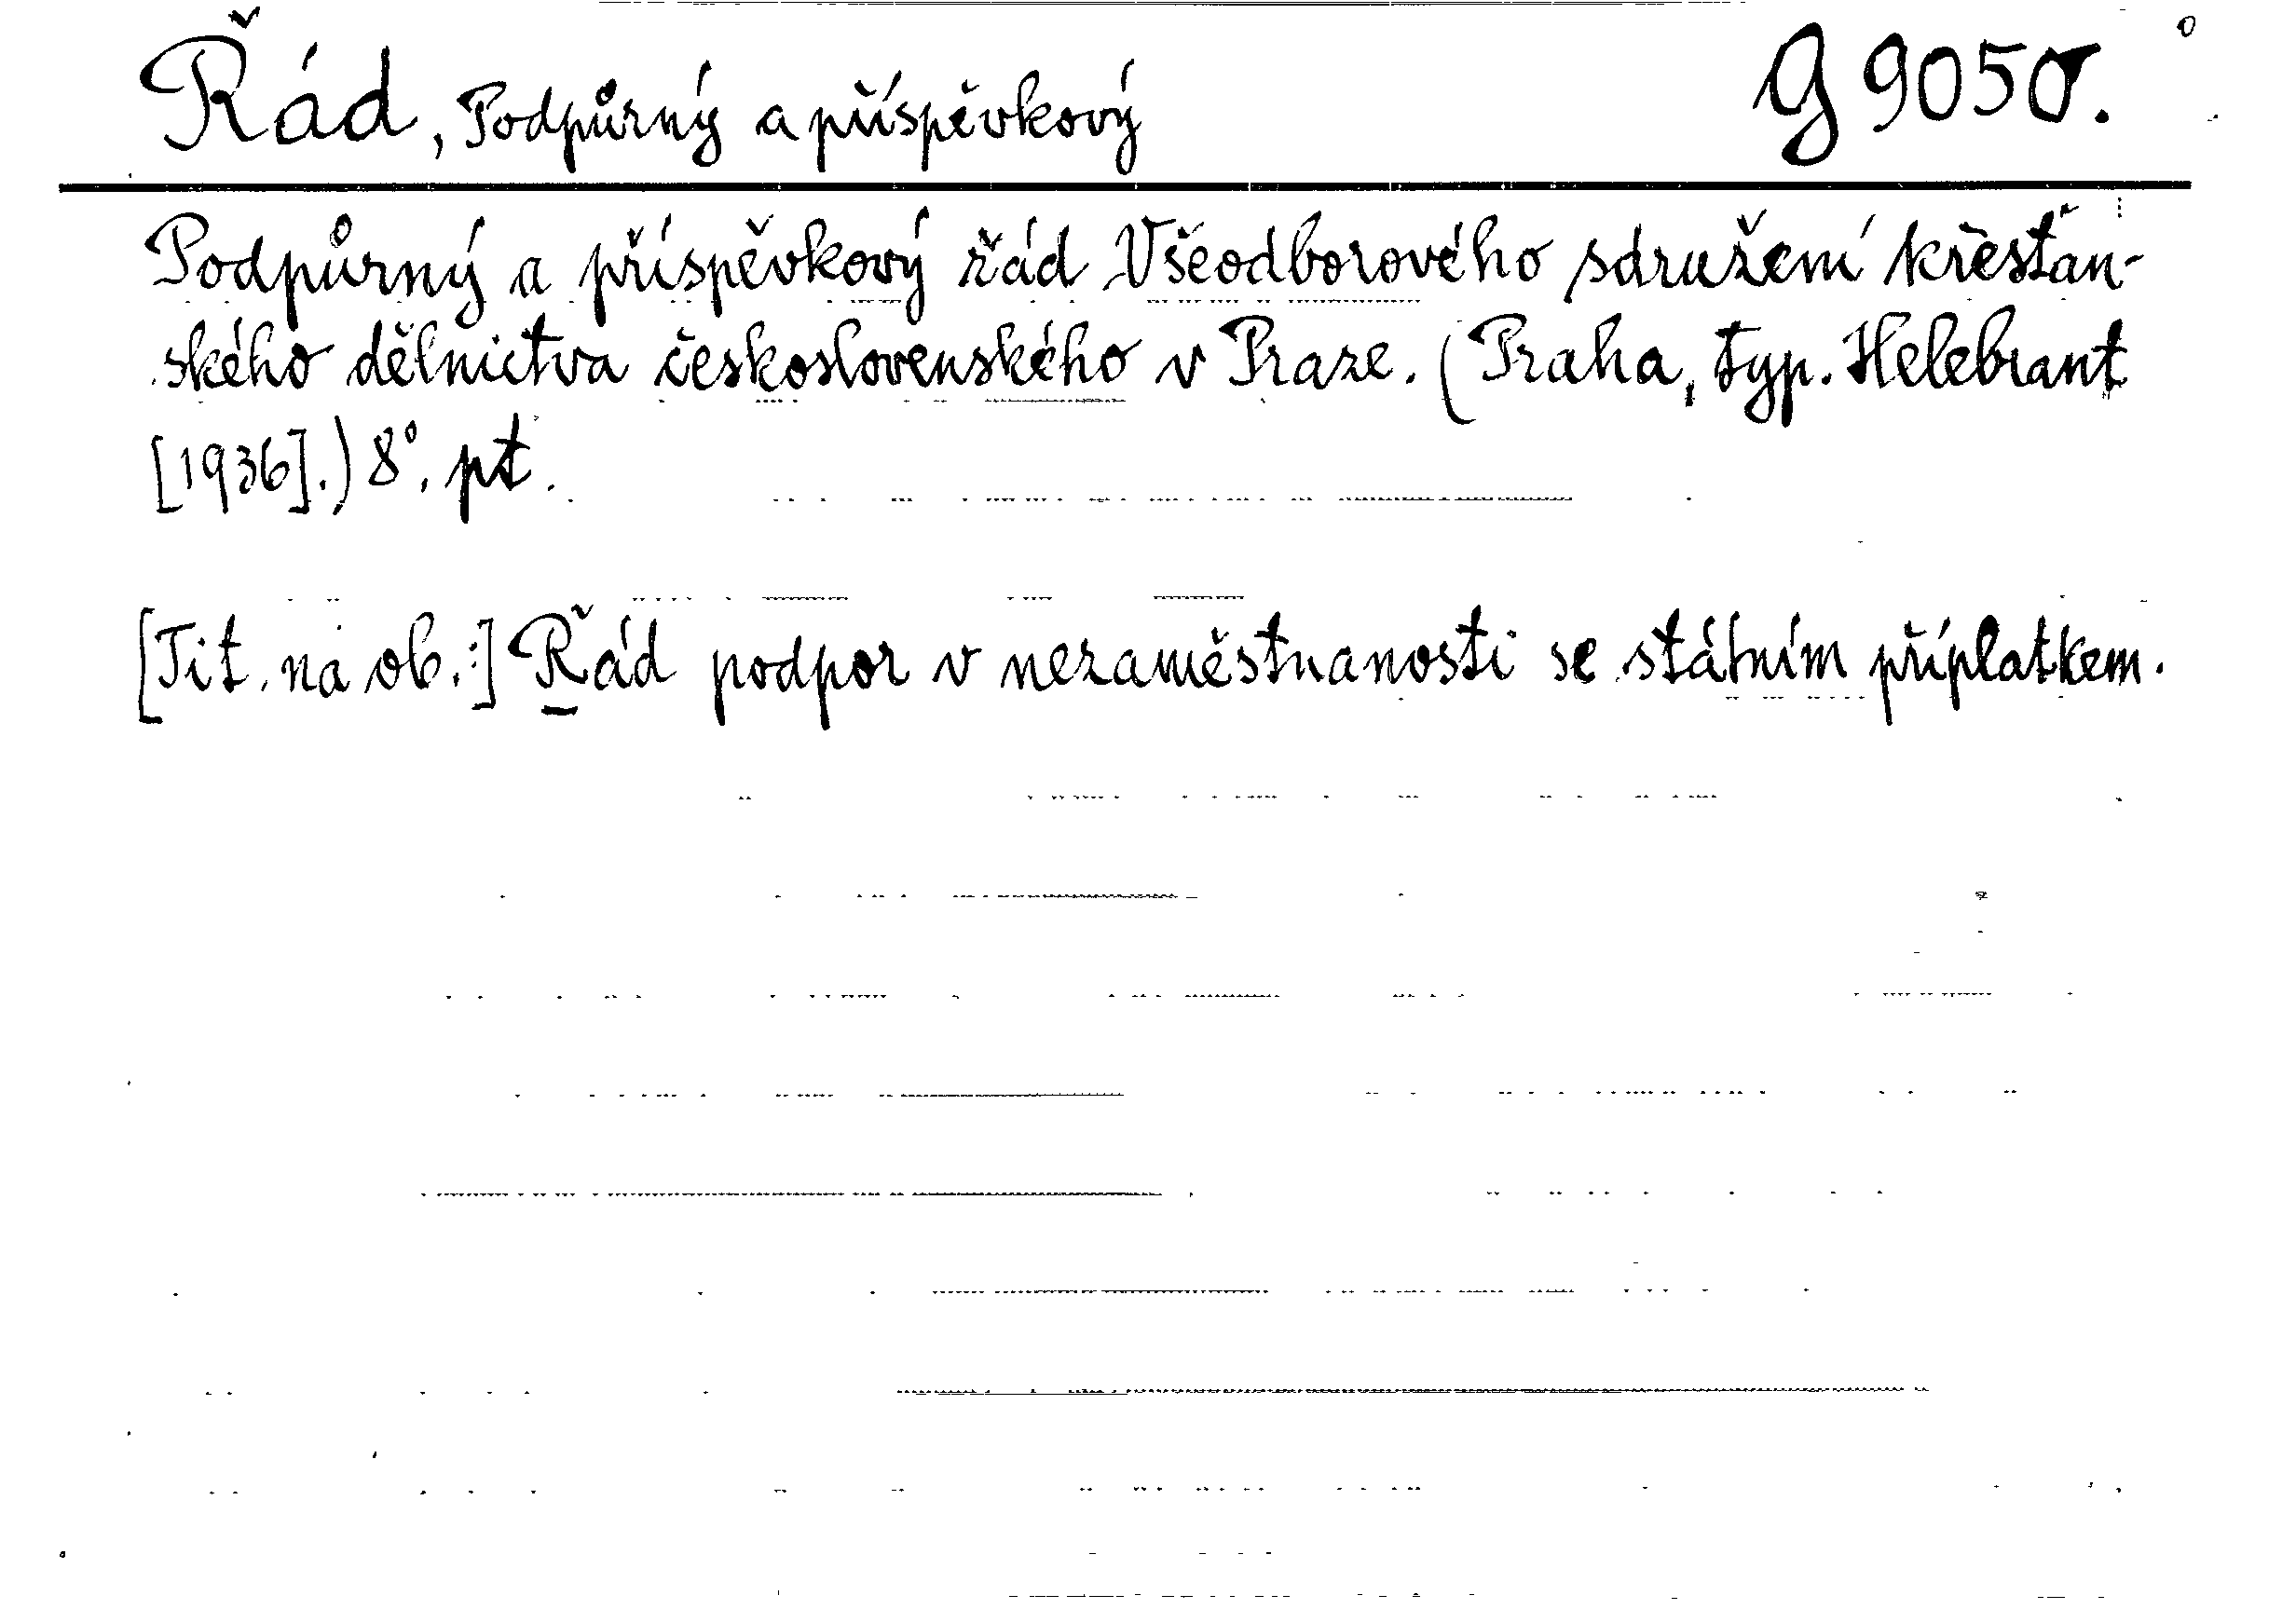 Řád, Podpůrný a příspěvkový G 9050.
Podpůrný a příspěvkový řád Všeodborového sdružení křesťan-
ského dělnictva československého v Praze. (Praha, typ. Helebrant
[1936].) 8°. pt.
[Tit. na ob.:] Řád podpor v nezaměstnanosti se státním příplatkem.